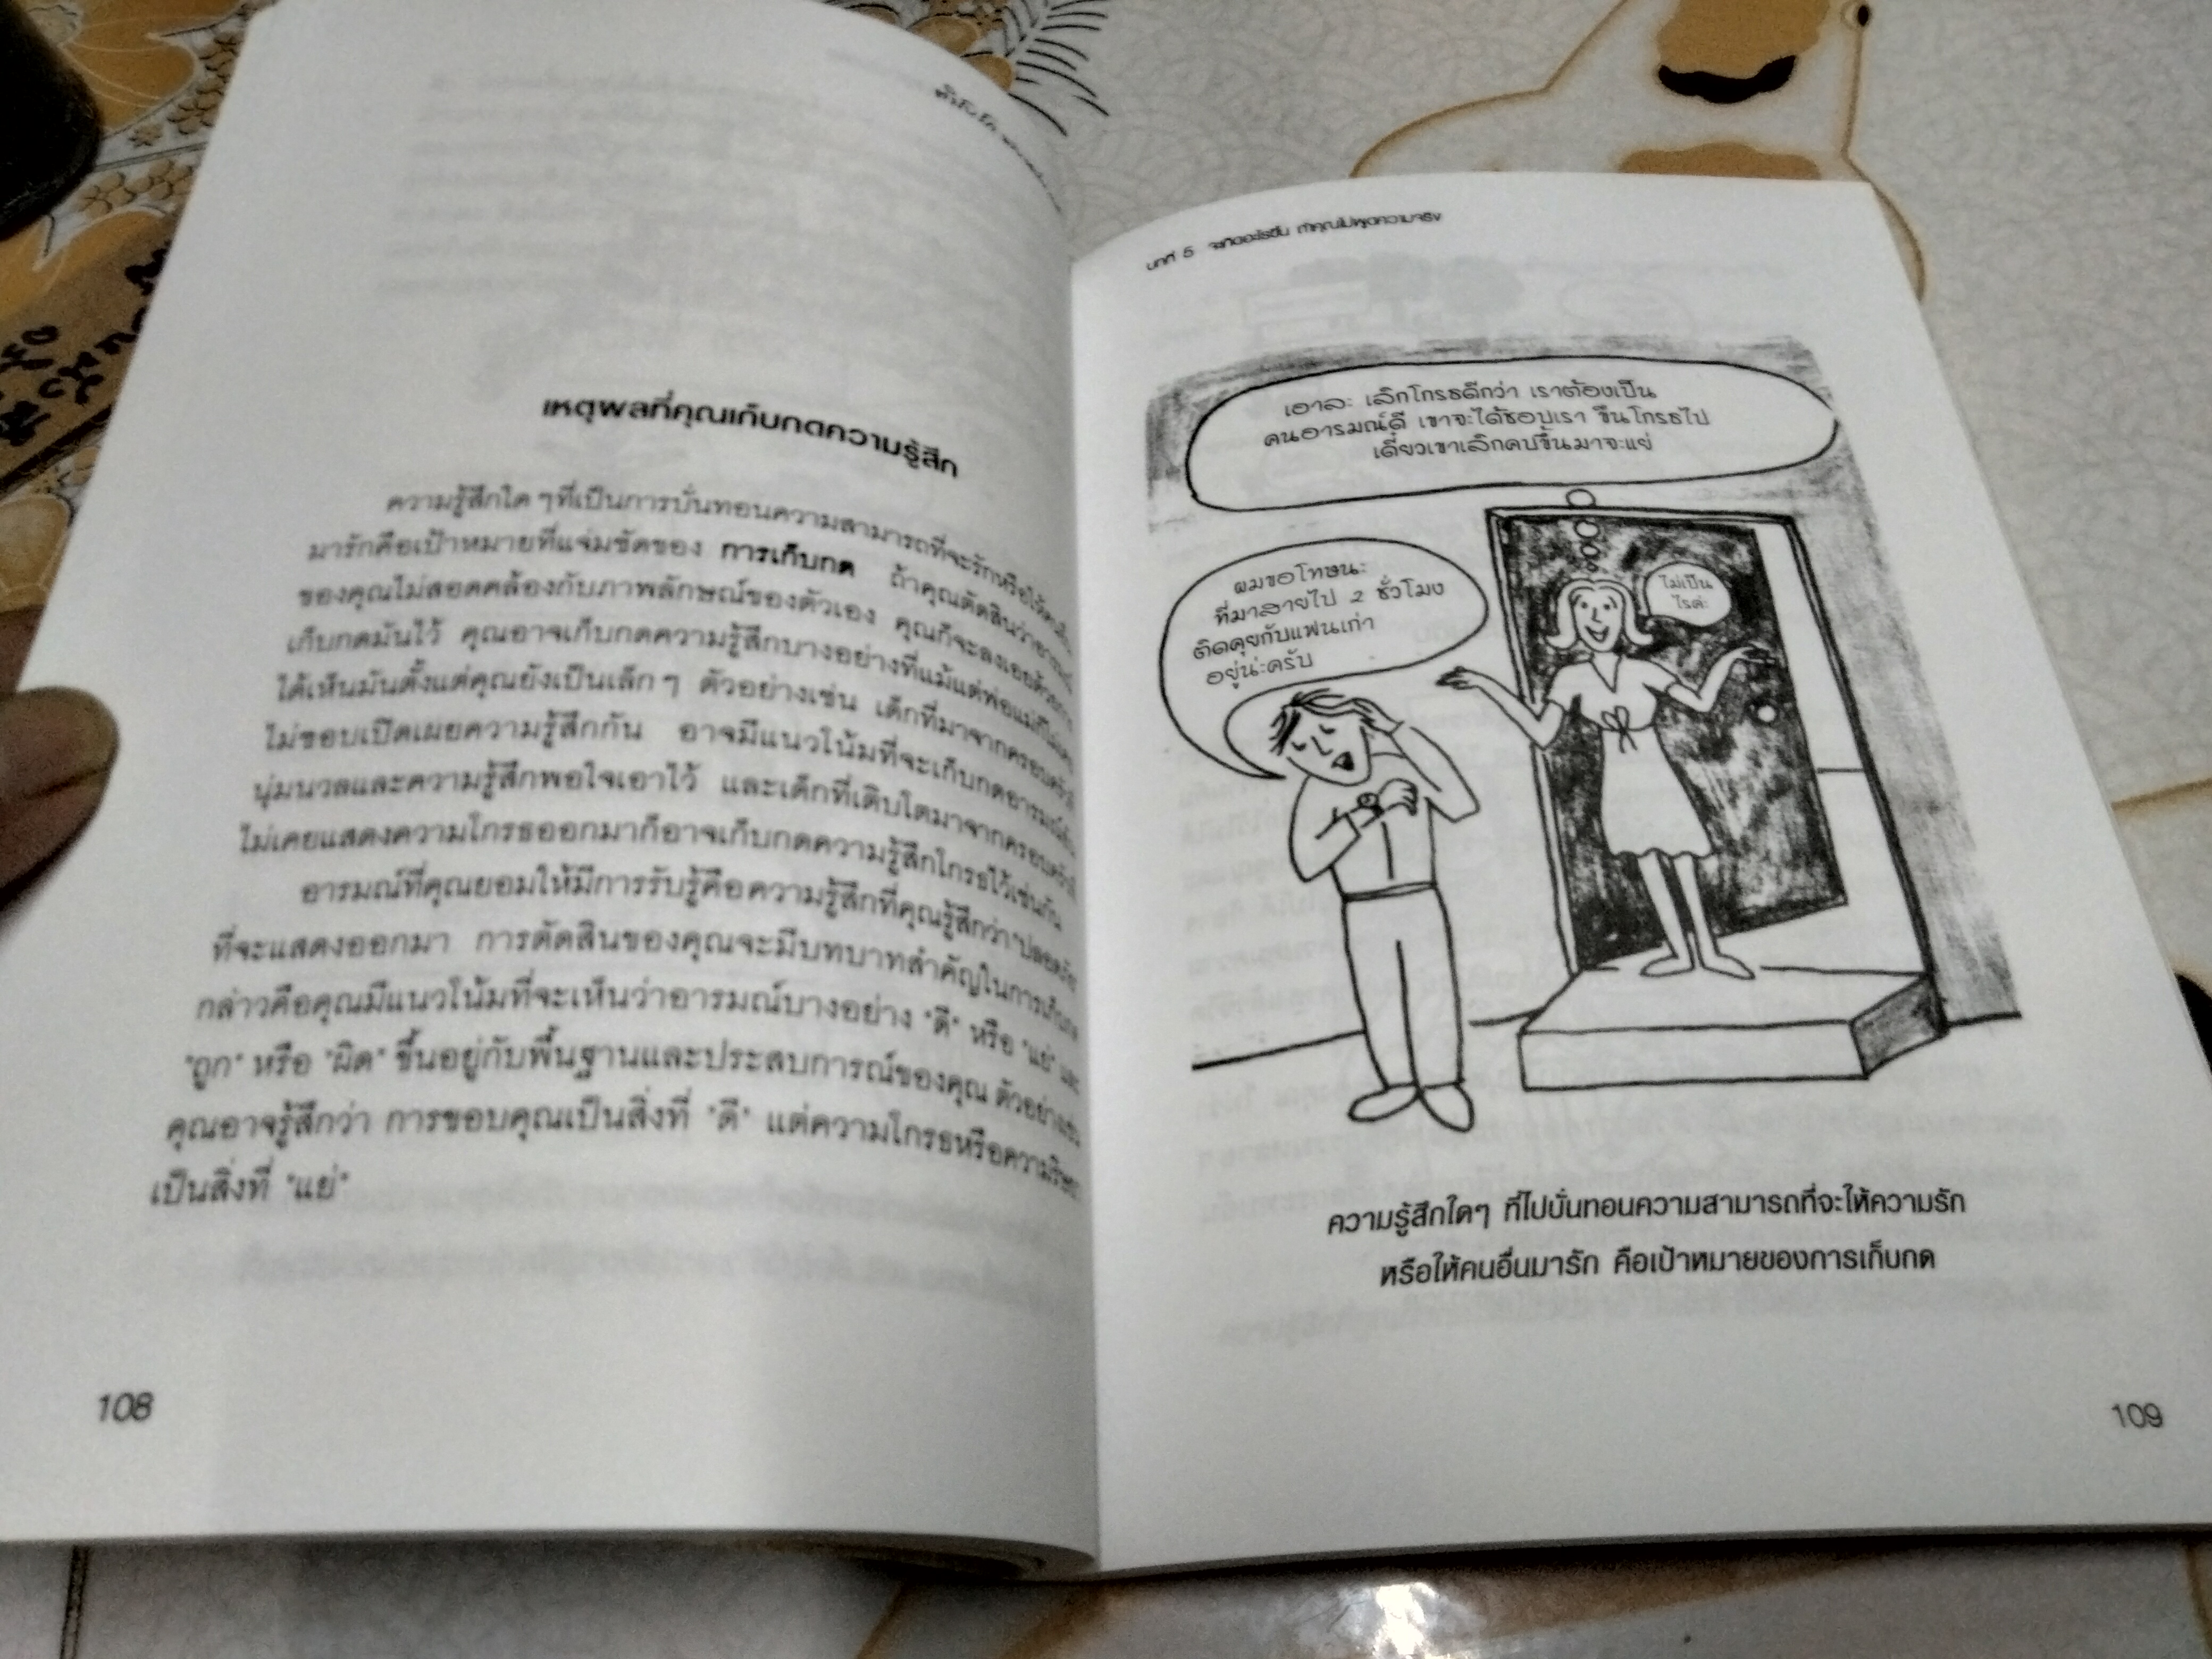 เหตุผลที่คุณเก็บกดความรู้สึก
ความรู้สึกใด ๆที่เป็นการบั่นทอนความสามารถที่จะรักหรือให้คนอื่น
มารักคือเป้าหมายที่แจ่มชัดของ การเก็บกด ถ้าคุณตัดสินว่าอารมณ์
ของคุณไม่สอดคล้องกับภาพลักษณ์ของตัวเอง คุณก็จะลงเอยด้วยการ
เก็บกดมันไว้ คุณอาจเก็บกดความรู้สึกบางอย่างที่แม้แต่พ่อแม่ก็ไม่เคย
ได้เห็นมันตั้งแต่คุณยังเป็นเล็ก ๆ ตัวอย่างเช่น เด็กที่มาจากครอบครัวที่
ไม่ชอบเปิดเผยความรู้สึกกัน อาจมีแนวโน้มที่จะเก็บกดอารมณ์อัน
นุ่มนวลและความรู้สึกพอใจเอาไว้ และเด็กที่เติบโตมาจากครอบครัวที่
ไม่เคยแสดงความโกรธออกมาก็อาจเก็บกดความรู้สึกโกรธไว้เช่นกัน
อารมณ์ที่คุณยอมให้มีการรับรู้คือความรู้สึกที่คุณรู้สึกว่า"ปลอดภัย"
ที่จะแสดงออกมา การตัดสินของคุณจะมีบทบาทสำคัญในการเก็บกด
กล่าวคือคุณมีแนวโน้มที่จะเห็นว่าอารมณ์บางอย่าง "ดี" หรือ "แย่" และ
"ถูก" หรือ "ผิด" ขึ้นอยู่กับพื้นฐานและประสบการณ์ของคุณ ตัวอย่างเช่น
คุณอาจรู้สึกว่า การขอบคุณเป็นสิ่งที่ "ดี" แต่ความโกรธหรือความริษยา
เป็นสิ่งที่ "แย่"
108
บทที่ 5 จะเกิดอะไรขึ้น ถ้าคุณไม่พูดความจริง
เอาละ เลิกโกรธดีกว่า เราต้องเป็น
คนอารมณ์ดี เขาจะได้ชอบเรา ขืนโกรธไป
เดี๋ยวเขาเลิกคบขึ้นมาจะแย่
ผมขอโทษนะ
ที่มาสายไป 2 ชั่วโมง
ติดคุยกับแฟนเก่า
อยู่น่ะครับ
ไม่เป็น
ไรค่ะ
ความรู้สึกใดๆ ที่ไปบั่นทอนความสามารถที่จะให้ความรัก
หรือให้คนอื่นมารัก คือเป้าหมายของการเก็บกด
109